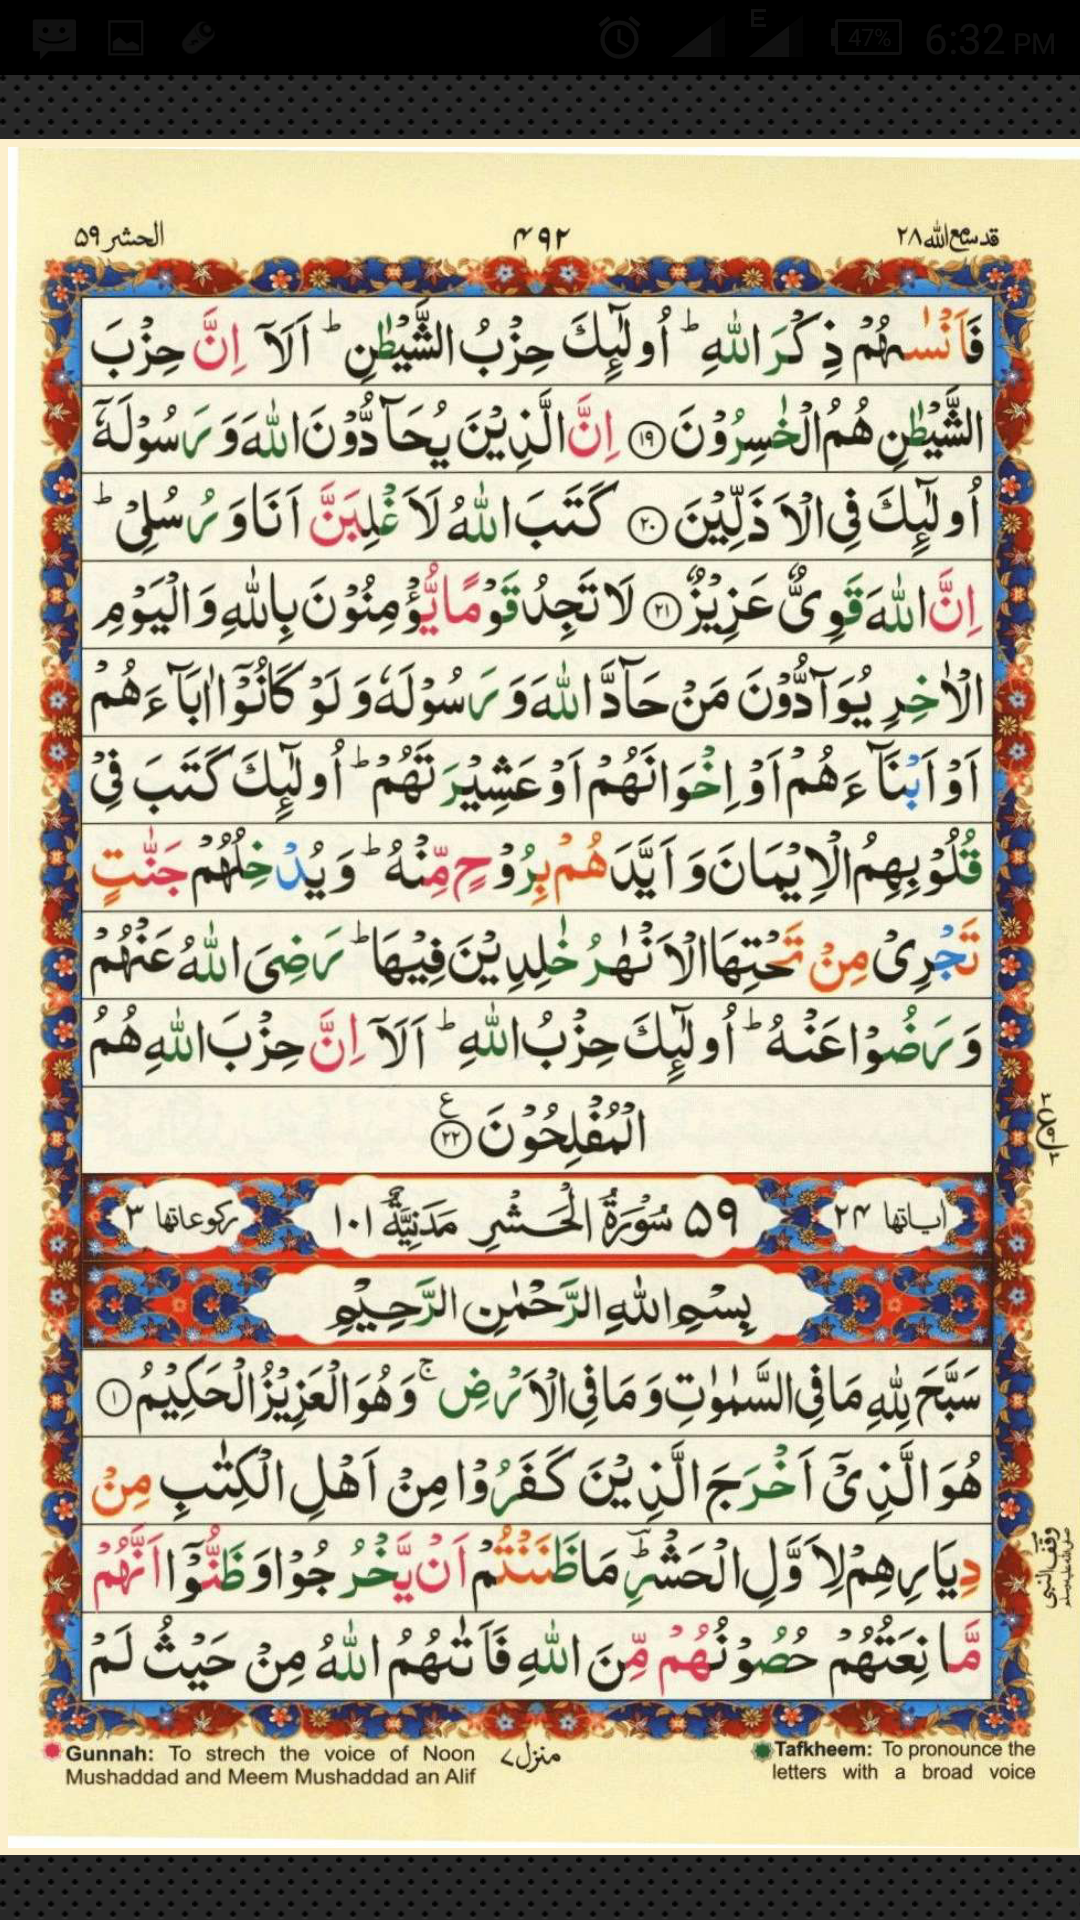 47% 6:32 PM
قد سمع الله ٢٨
۴۹۲
الحشر ۵۹
فَاَنْسٰىهُمْ ذِكْرَ اللّٰهِ ؕ اُولٰٓئِكَ حِزْبُ الشَّيْطٰنِ ؕ اَلَاۤ اِنَّ حِزْبَ
الشَّيْطٰنِ هُمُ الْخٰسِرُوْنَ ﴿۱۹﴾ اِنَّ الَّذِيْنَ يُحَآدُّوْنَ اللّٰهَ وَرَسُوْلَهٗۤ
اُولٰٓئِكَ فِى الْاَذَلِّيْنَ ﴿۲۰﴾ كَتَبَ اللّٰهُ لَاَغْلِبَنَّ اَنَا وَرُسُلِىْ ؕ
اِنَّ اللّٰهَ قَوِىٌّ عَزِيْزٌ ﴿۲۱﴾ لَا تَجِدُ قَوْمًا يُّؤْمِنُوْنَ بِاللّٰهِ وَالْيَوْمِ
الْاٰخِرِ يُوَآدُّوْنَ مَنْ حَآدَّ اللّٰهَ وَرَسُوْلَهٗ وَلَوْ كَانُوْۤا اٰبَآءَهُمْ
اَوْ اَبْنَآءَهُمْ اَوْ اِخْوَانَهُمْ اَوْ عَشِيْرَتَهُمْ ؕ اُولٰٓئِكَ كَتَبَ فِىْ
قُلُوْبِهِمُ الْاِيْمَانَ وَاَيَّدَهُمْ بِرُوْحٍ مِّنْهُ ؕ وَيُدْخِلُهُمْ جَنّٰتٍ
تَجْرِىْ مِنْ تَحْتِهَا الْاَنْهٰرُ خٰلِدِيْنَ فِيْهَا ؕ رَضِىَ اللّٰهُ عَنْهُمْ
وَرَضُوْا عَنْهُ ؕ اُولٰٓئِكَ حِزْبُ اللّٰهِ ؕ اَلَاۤ اِنَّ حِزْبَ اللّٰهِ هُمُ
الْمُفْلِحُوْنَ ﴿۲۲﴾ ع
اياتها ٢۴ ۵۹ سُوْرَةُ الْحَشْرِ مَدَنِيَّةٌ ١٠١ ركوعاتها ٣
بِسْمِ اللّٰهِ الرَّحْمٰنِ الرَّحِيْمِ
سَبَّحَ لِلّٰهِ مَا فِى السَّمٰوٰتِ وَمَا فِى الْاَرْضِ ۚ وَهُوَ الْعَزِيْزُ الْحَكِيْمُ ﴿۱﴾
هُوَ الَّذِىْۤ اَخْرَجَ الَّذِيْنَ كَفَرُوْا مِنْ اَهْلِ الْكِتٰبِ مِنْ
دِيَارِهِمْ لِاَوَّلِ الْحَشْرِ ؕ مَا ظَنَنْتُمْ اَنْ يَّخْرُجُوْا وَظَنُّوْۤا اَنَّهُمْ
مَّانِعَتُهُمْ حُصُوْنُهُمْ مِّنَ اللّٰهِ فَاَتٰىهُمُ اللّٰهُ مِنْ حَيْثُ لَمْ
وقف النبی
منزل ٧
Gunnah: To strech the voice of Noon
Mushaddad and Meem Mushaddad an Alif
Tafkheem: To pronounce the
letters with a broad voice